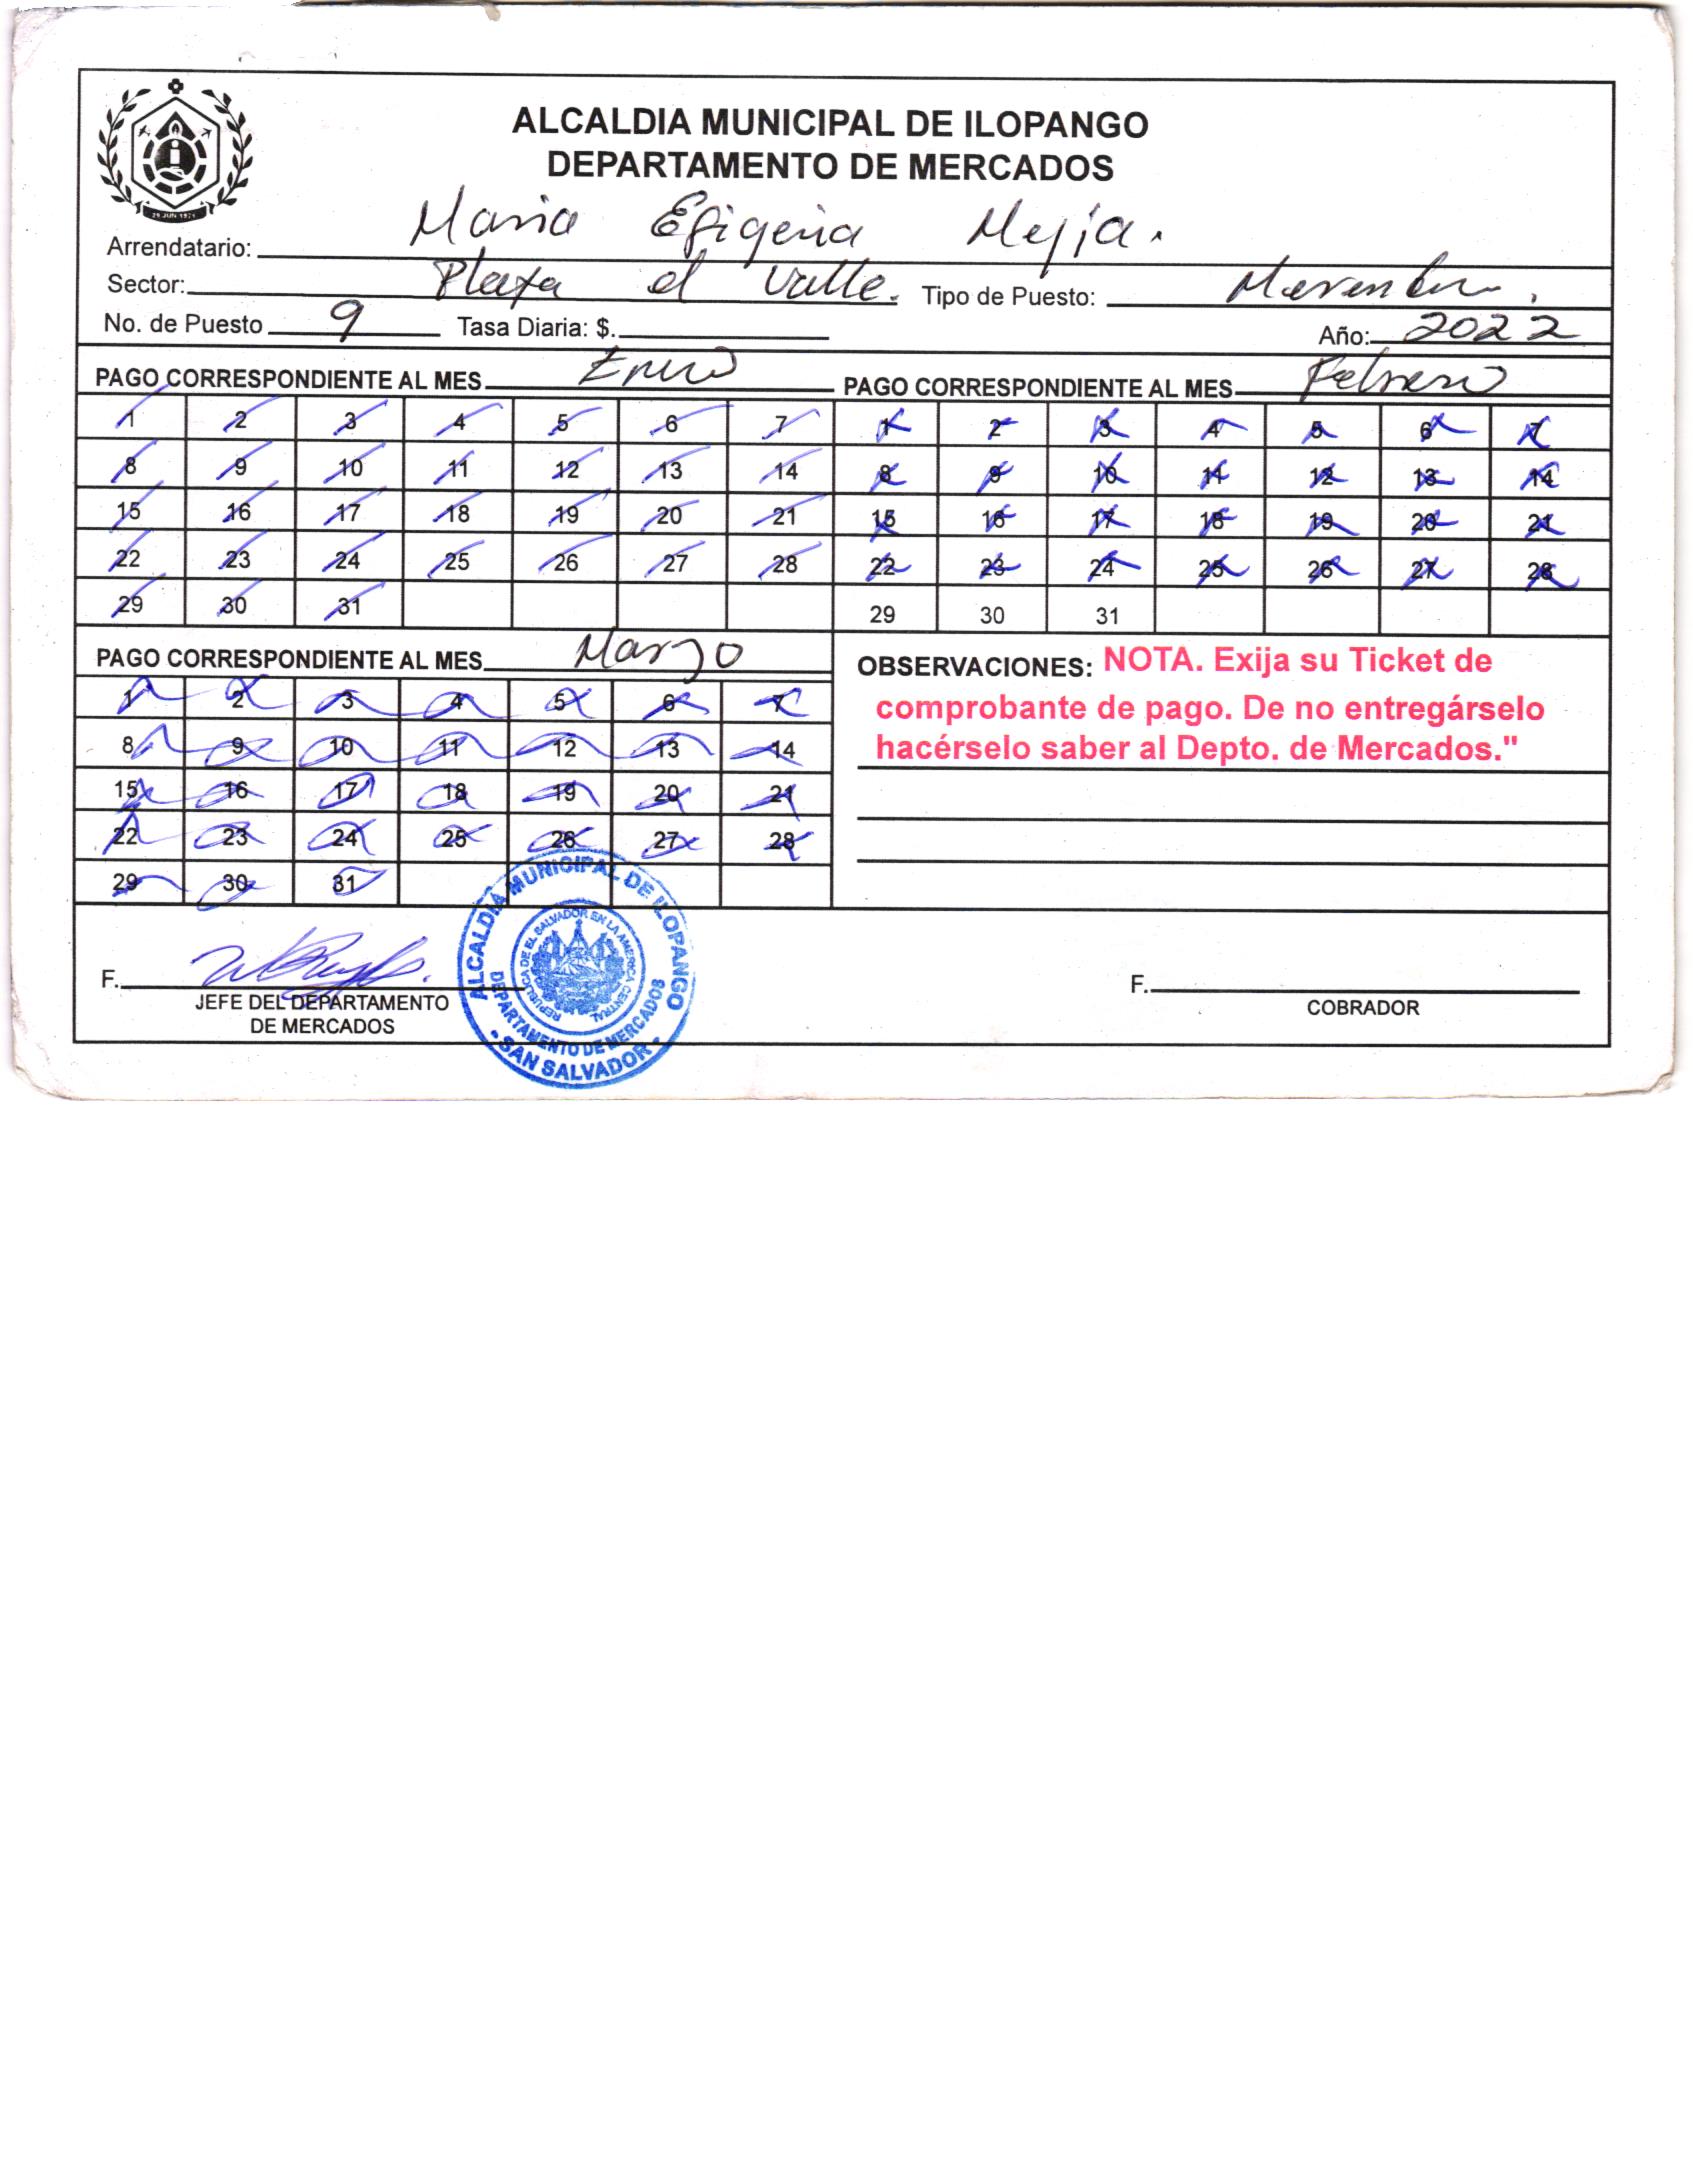 ALCALDIA MUNICIPAL DE ILOPANGO
DEPARTAMENTO DE MERCADOS
29 JUN 1971
Arrendatario: Maria Efigenia Mejia.
Sector: Plaza el Valle. Tipo de Puesto:
No. de Puesto 9 Tasa Diaria: $. Año: 2022
PAGO CORRESPONDIENTE AL MES Enero
1 2 3 4 5 6 7
8 9 10 11 12 13 14
15 16 17 18 19 20 21
22 23 24 25 26 27 28
29 30 31
PAGO CORRESPONDIENTE AL MES Febrero
1 2 3 4 5 6 7
8 9 10 11 12 13 14
15 16 17 18 19 20 21
22 23 24 25 26 27 28
29 30 31
PAGO CORRESPONDIENTE AL MES Marzo
1 2 3 4 5 6 7
8 9 10 11 12 13 14
15 16 17 18 19 20 21
22 23 24 25 26 27 28
29 30 31
OBSERVACIONES: NOTA. Exija su Ticket de
comprobante de pago. De no entregárselo
hacérselo saber al Depto. de Mercados."
F.
JEFE DEL DEPARTAMENTO
DE MERCADOS
ALCALDÍA MUNICIPAL DE ILOPANGO
REPUBLICA DE EL SALVADOR EN LA AMERICA CENTRAL
DEPARTAMENTO DE MERCADOS
- SAN SALVADOR -
F.
COBRADOR